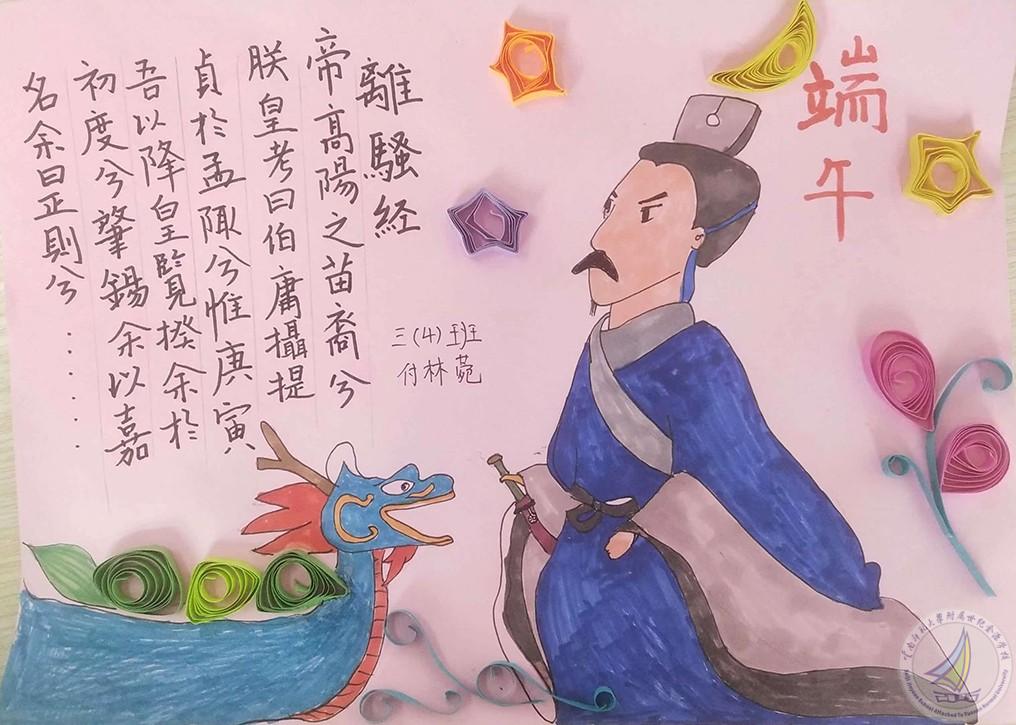 端午
離騷经
帝高陽之苗裔兮
朕皇考曰伯庸攝提
貞於孟陬兮惟庚寅
吾以降皇覽揆余於
初度兮肇錫余以嘉
名余曰正則兮······
三(4)班
付林菀
School Attached To Yunnan Normal University